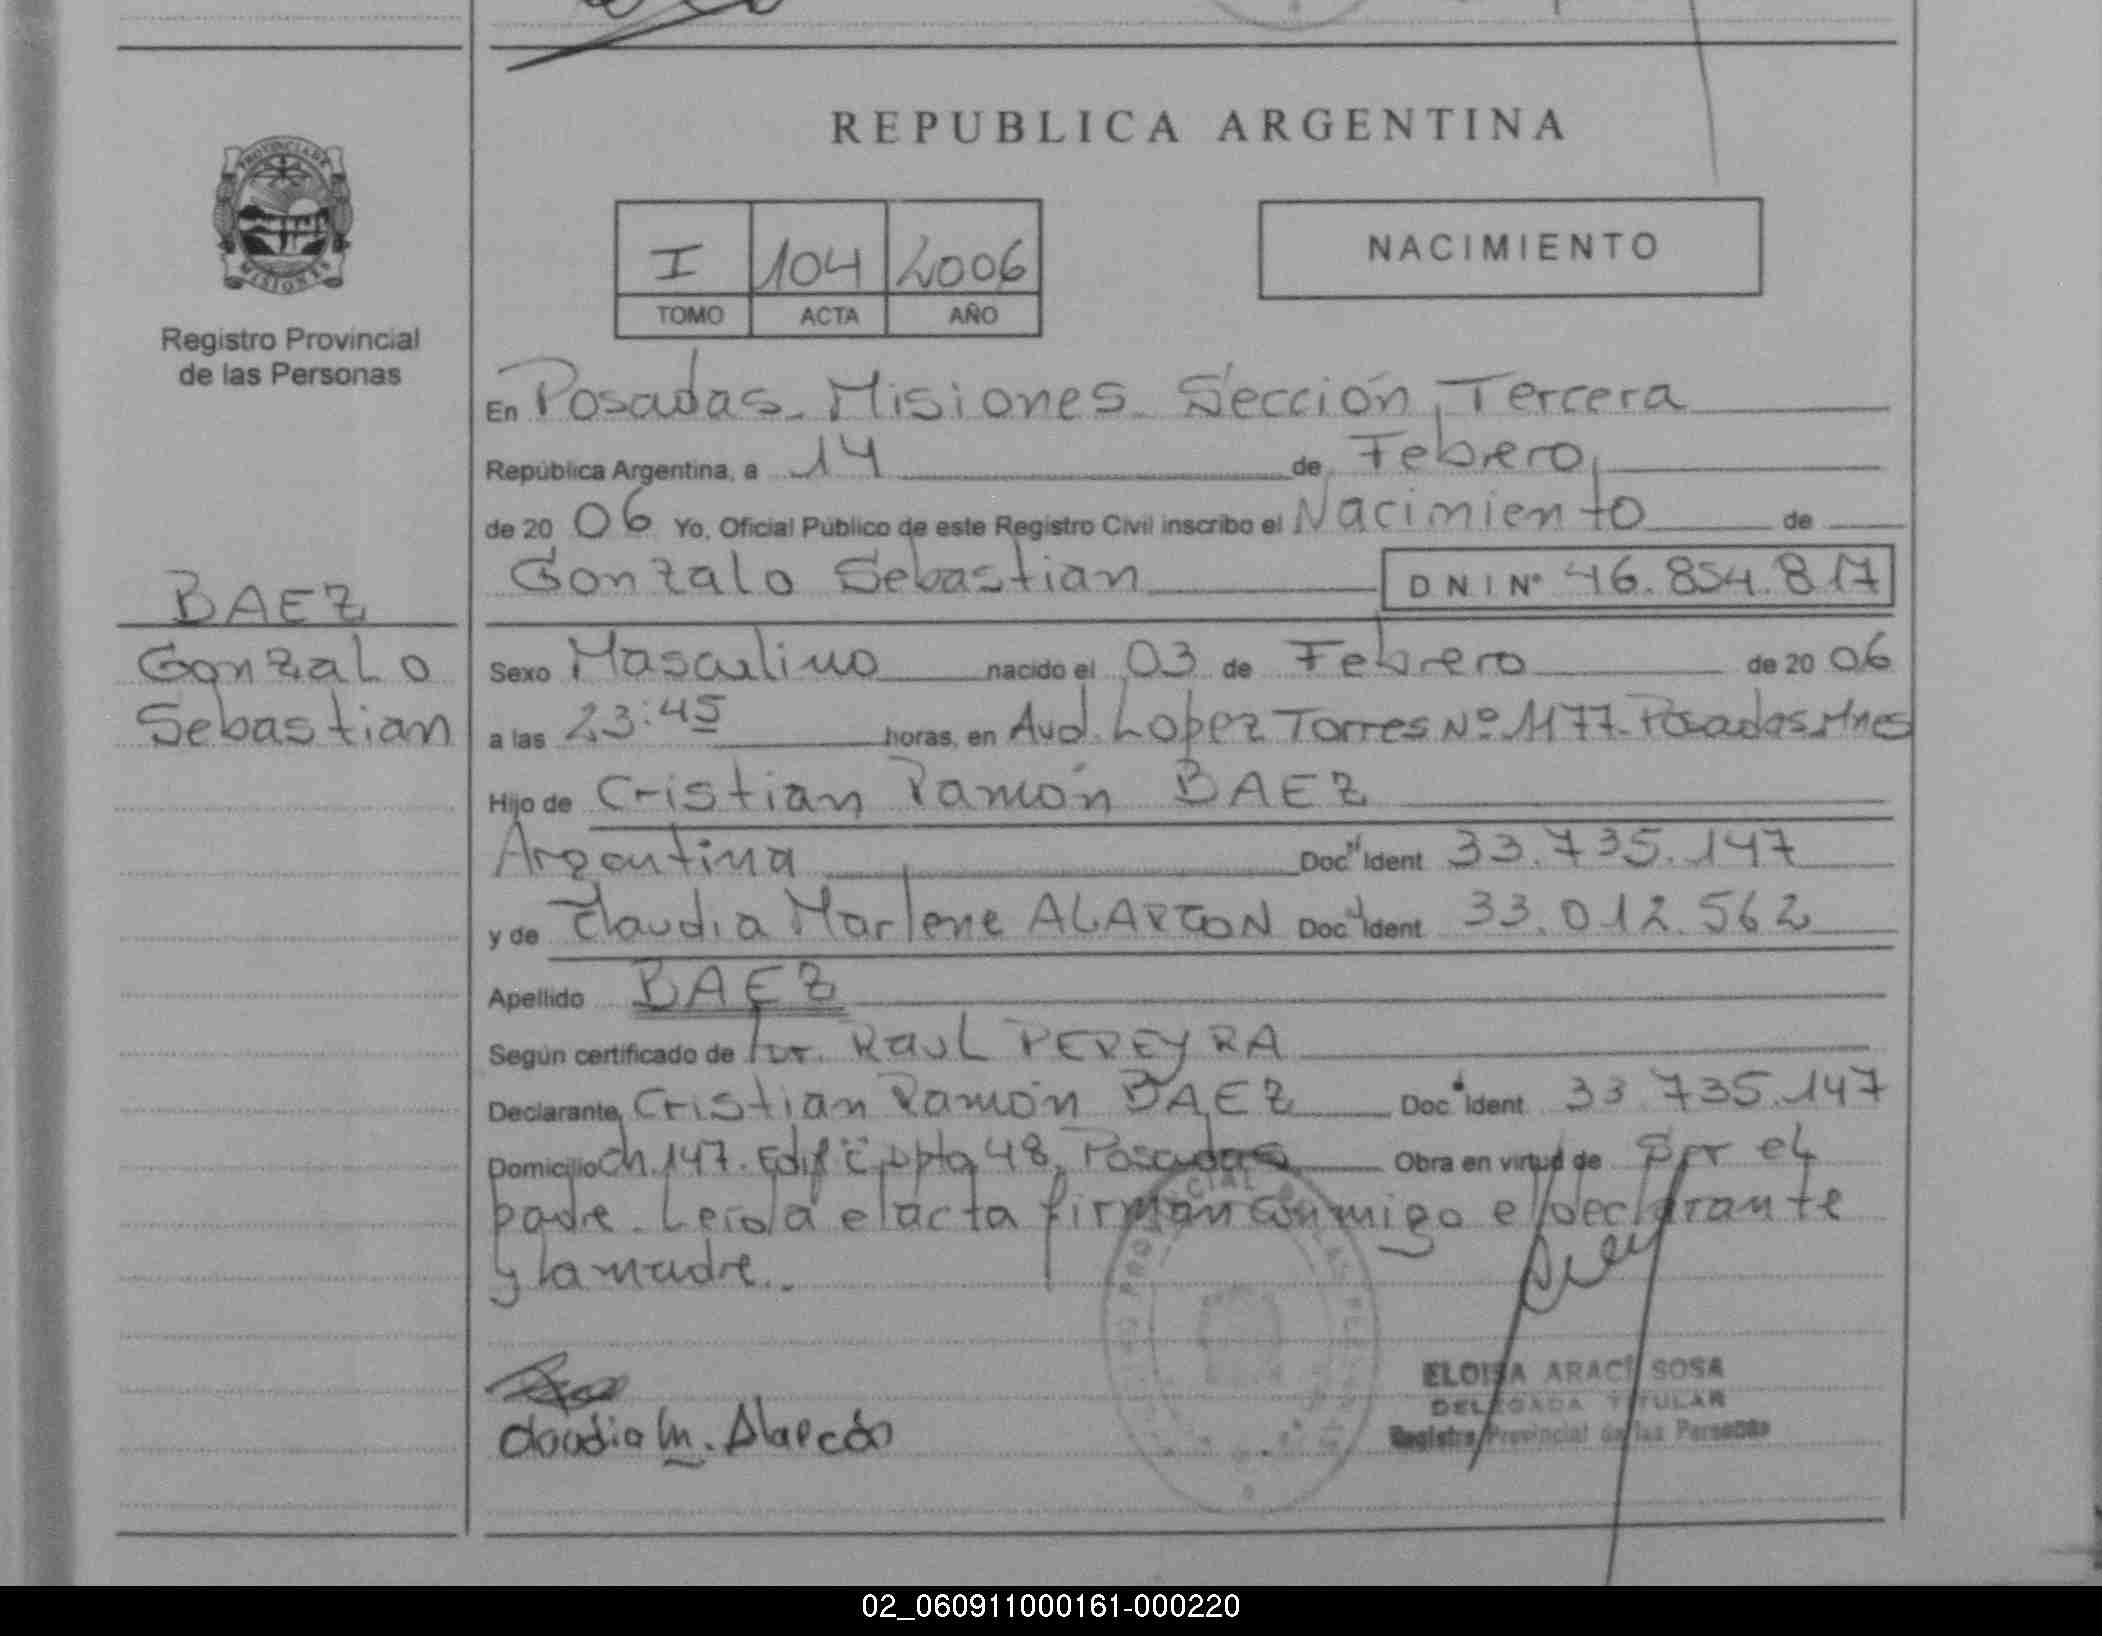 REPUBLICA ARGENTINA
PROVINCIA DE
MISIONES
Registro Provincial
de las Personas
I 104 2006
TOMO ACTA AÑO
NACIMIENTO
En Posadas - Misiones - Sección Tercera
República Argentina, a 14 de Febrero
de 20 06 Yo, Oficial Público de este Registro Civil inscribo el Nacimiento de
Gonzalo Sebastian DNI Nº 46.854.817
BAEZ
Gonzalo
Sebastian
Sexo Masculino nacido el 03 de Febrero de 20 06
a las 23:45 horas, en Avd. Lopez Torres Nº 1177 - Posadas, Mnes
Hijo de Cristian Ramón BAEZ
Argentina Doc Ident 33.735.147
y de Claudia Marlene ALARCON Doc Ident 33.012.562
Apellido BAEZ
Según certificado de Dr. Raul PEREYRA
Declarante Cristian Ramón BAEZ Doc Ident 33.735.147
Domicilio Ch. 147. Edif C, Dpto 48, Posadas Obra en virtud de Ser el
padre. Leida el acta firman conmigo el declarante
y la madre.
Claudia M. Alarcón
ELOISA ARACI SOSA
DELEGADA TITULAR
Registro Provincial de las Personas
02_060911000161-000220